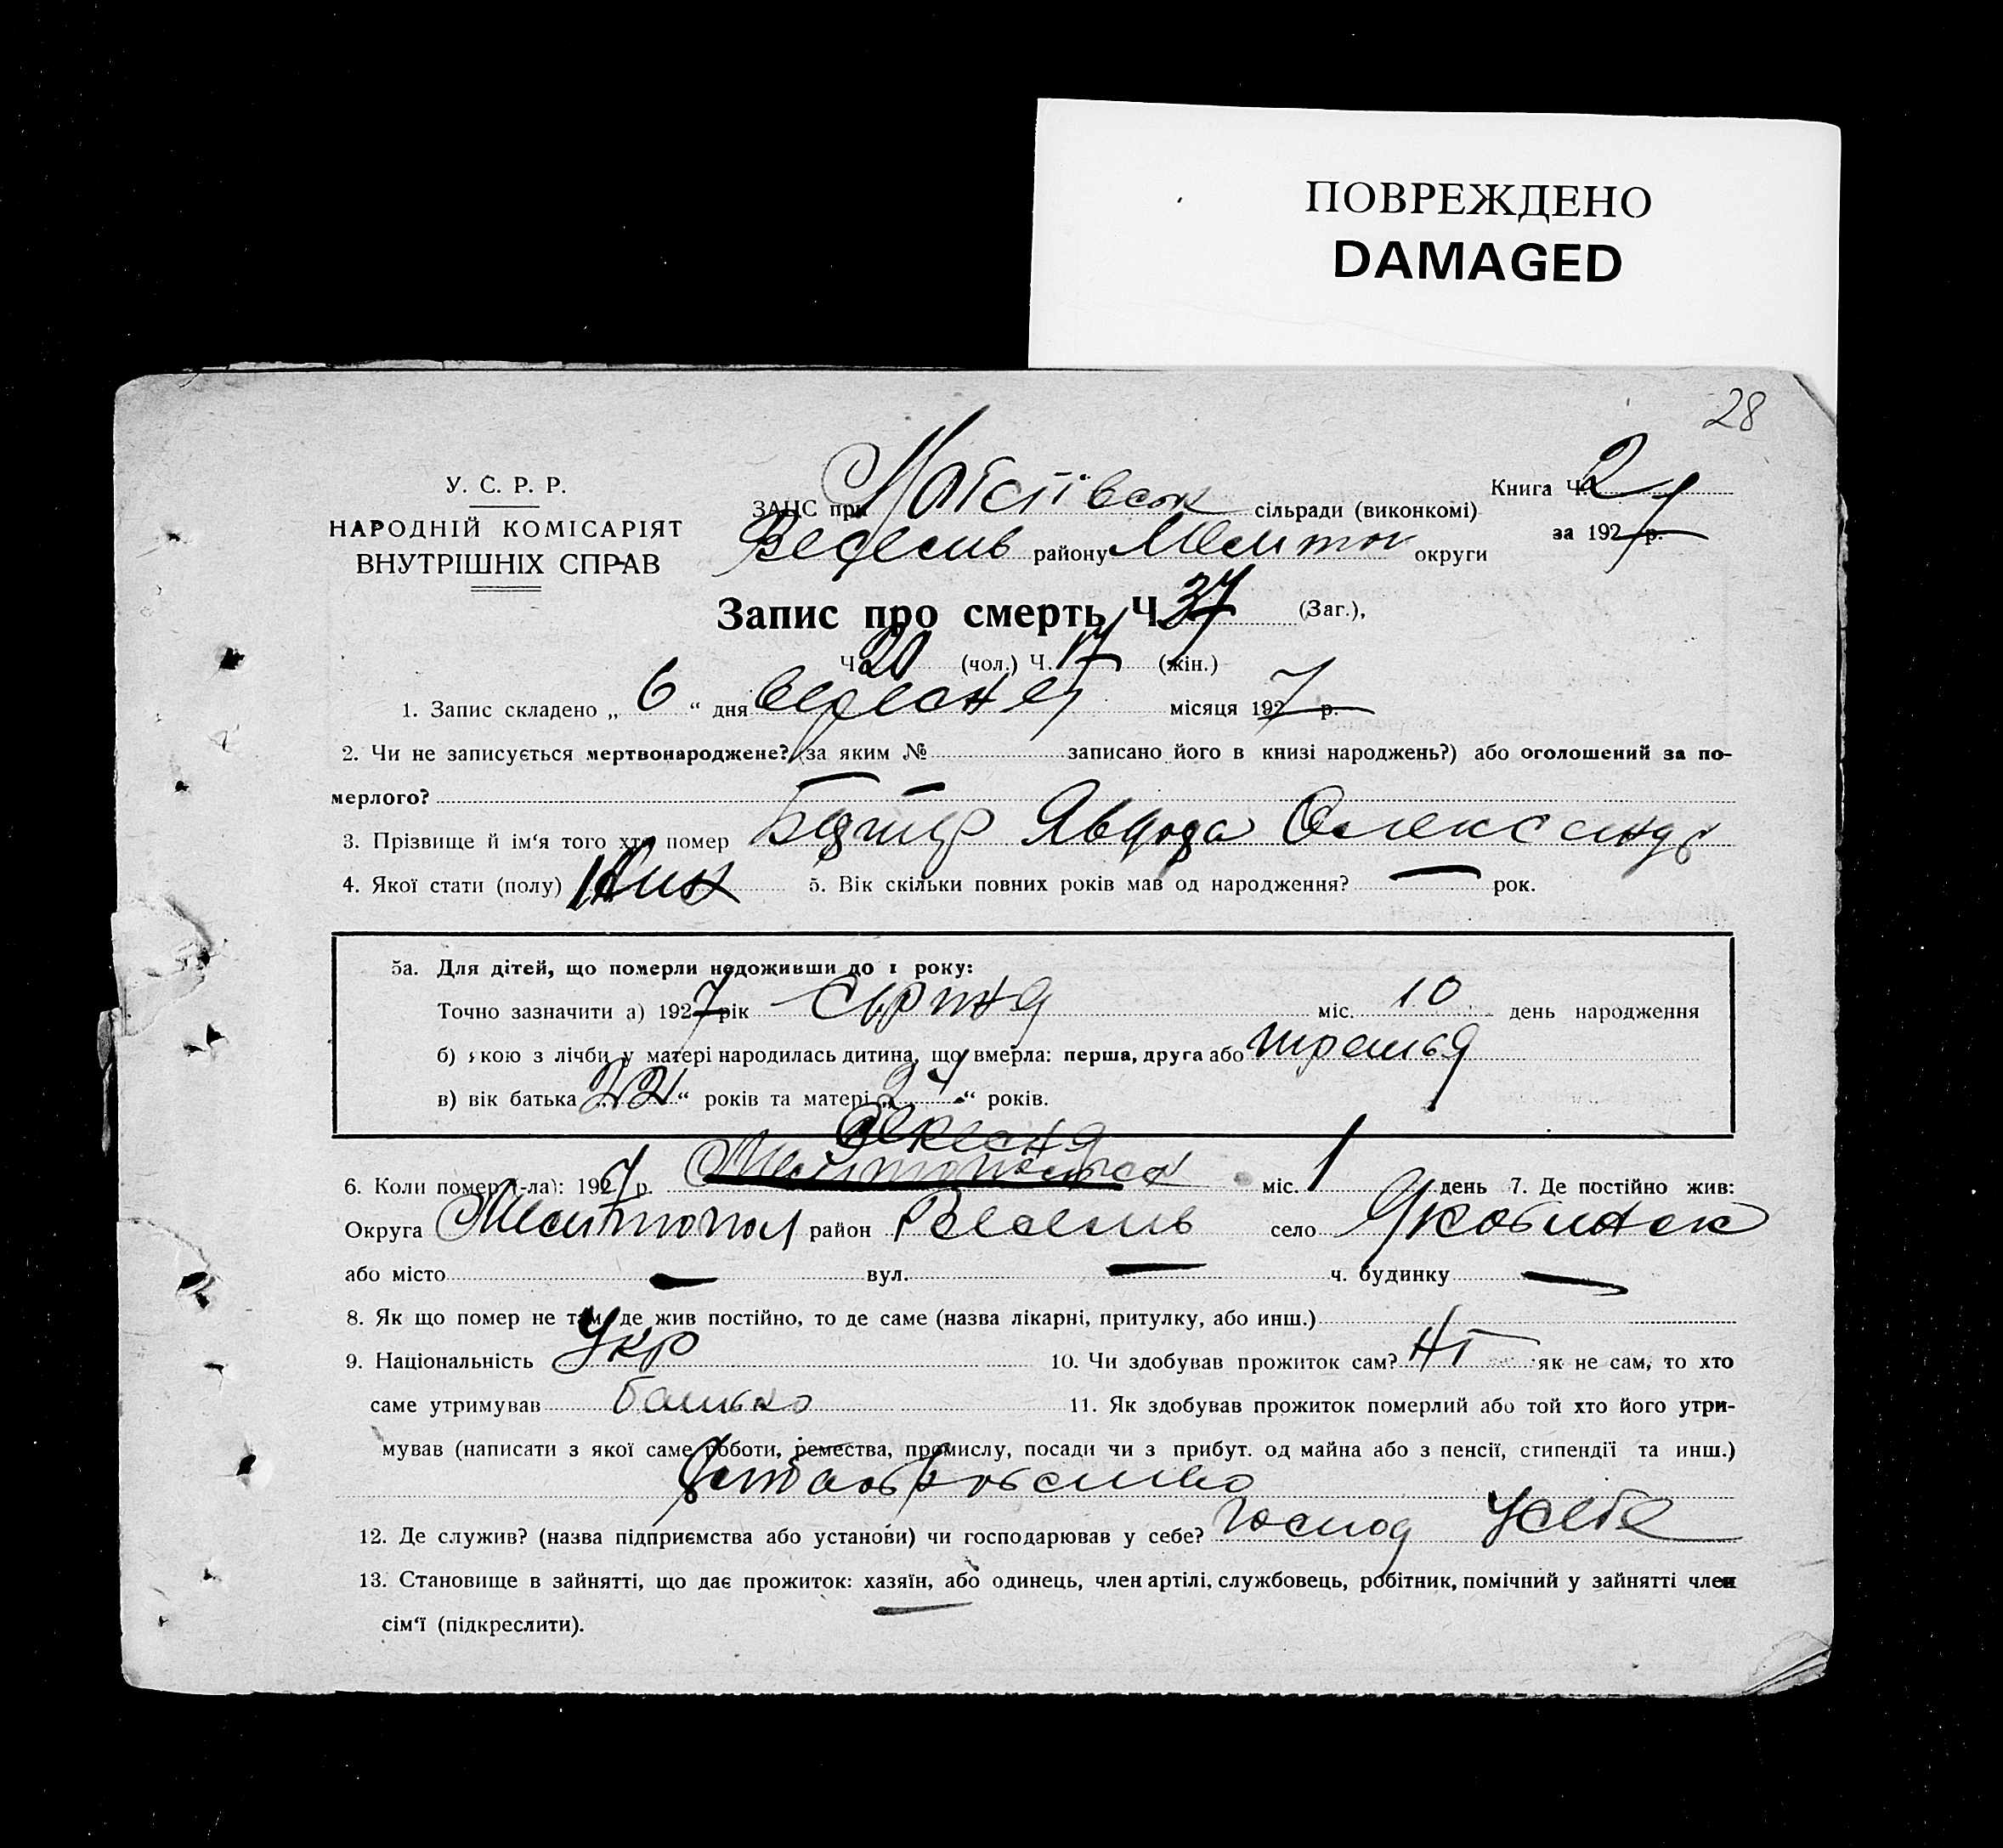 ПОВРЕЖДЕНО
DAMAGED
28
У. С. Р. Р.
НАРОДНІЙ КОМІСАРІЯТ
ВНУТРІШНІХ СПРАВ
ЗАГС при сільради (виконкомі)
Книга Ч. 2
району Меліто округи
за 1927 р.
Запис про смерть Ч. 37 (Заг.),
Ч. 20 (чол.) Ч. 17 (жін.)
1. Запис складено „ 6 “ дня вересня місяця 1927 р.
2. Чи не записується мертвонароджене? (за яким № записано його в книзі народжень?) або оголошений за по-
мерлого? —
3. Прізвище й ім‘я того хто помер Явдоха Олександр
4. Якої стати (полу) Жін 5. Вік скільки повних років мав од народження? — рок.
5а. Для дітей, що померли недоживши до 1 року:
Точно зазначити а) 1927 рік Серпня міс. 10 день народження
б) якою з лічби у матері народилась дитина, що вмерла: перша, друга або третья
в) вік батька „ 22 “ років та матері „ “ років.
6. Коли помер (-ла): 1927 р. Вересня міс. 1 день 7. Де постійно жив:
Округа Мелитопол район Веселив село
або місто — вул. — ч. будинку —
8. Як що помер не там, де жив постійно, то де саме (назва лікарні, притулку, або инш.)
9. Національність Укр 10. Чи здобував прожиток сам? Ні як не сам, то хто
саме утримував батько 11. Як здобував прожиток померлий або той хто його утри-
мував (написати з якої саме роботи, ремества, промислу, посади чи з прибут. од майна або з пенсії, стипендії та инш.)
12. Де служив? (назва підприємства або установи) чи господарював у себе? Господ у себе
13. Становище в зайнятті, що дає прожиток: хазяїн, або одинець, член артілі, службовець, робітник, помічний у зайнятті член
сім‘ї (підкреслити).